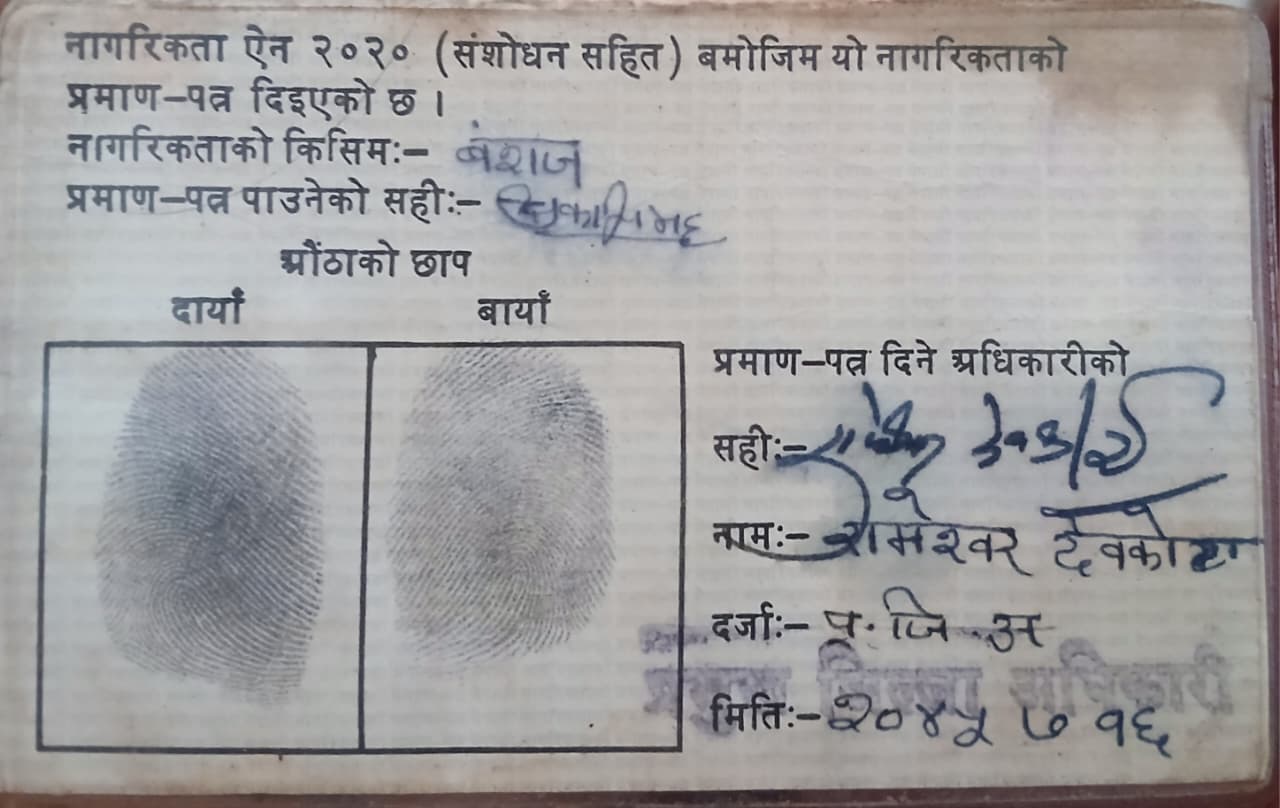 नागरिकता ऐन २०२० (संशोधन सहित) बमोजिम यो नागरिकताको
प्रमाण-पत्र दिइएको छ ।
नागरिकताको किसिमः- बंशज
प्रमाण-पत्र पाउनेको सहीः-
औंठाको छाप
दायाँ बायाँ
प्रमाण-पत्र दिने अधिकारीको
सहीः-
नामः- रामेश्वर देवकोटा
दर्जाः- प्र. जि. अ
प्रमुख जिल्ला अधिकारी
मितिः- २०४५ ७ १६